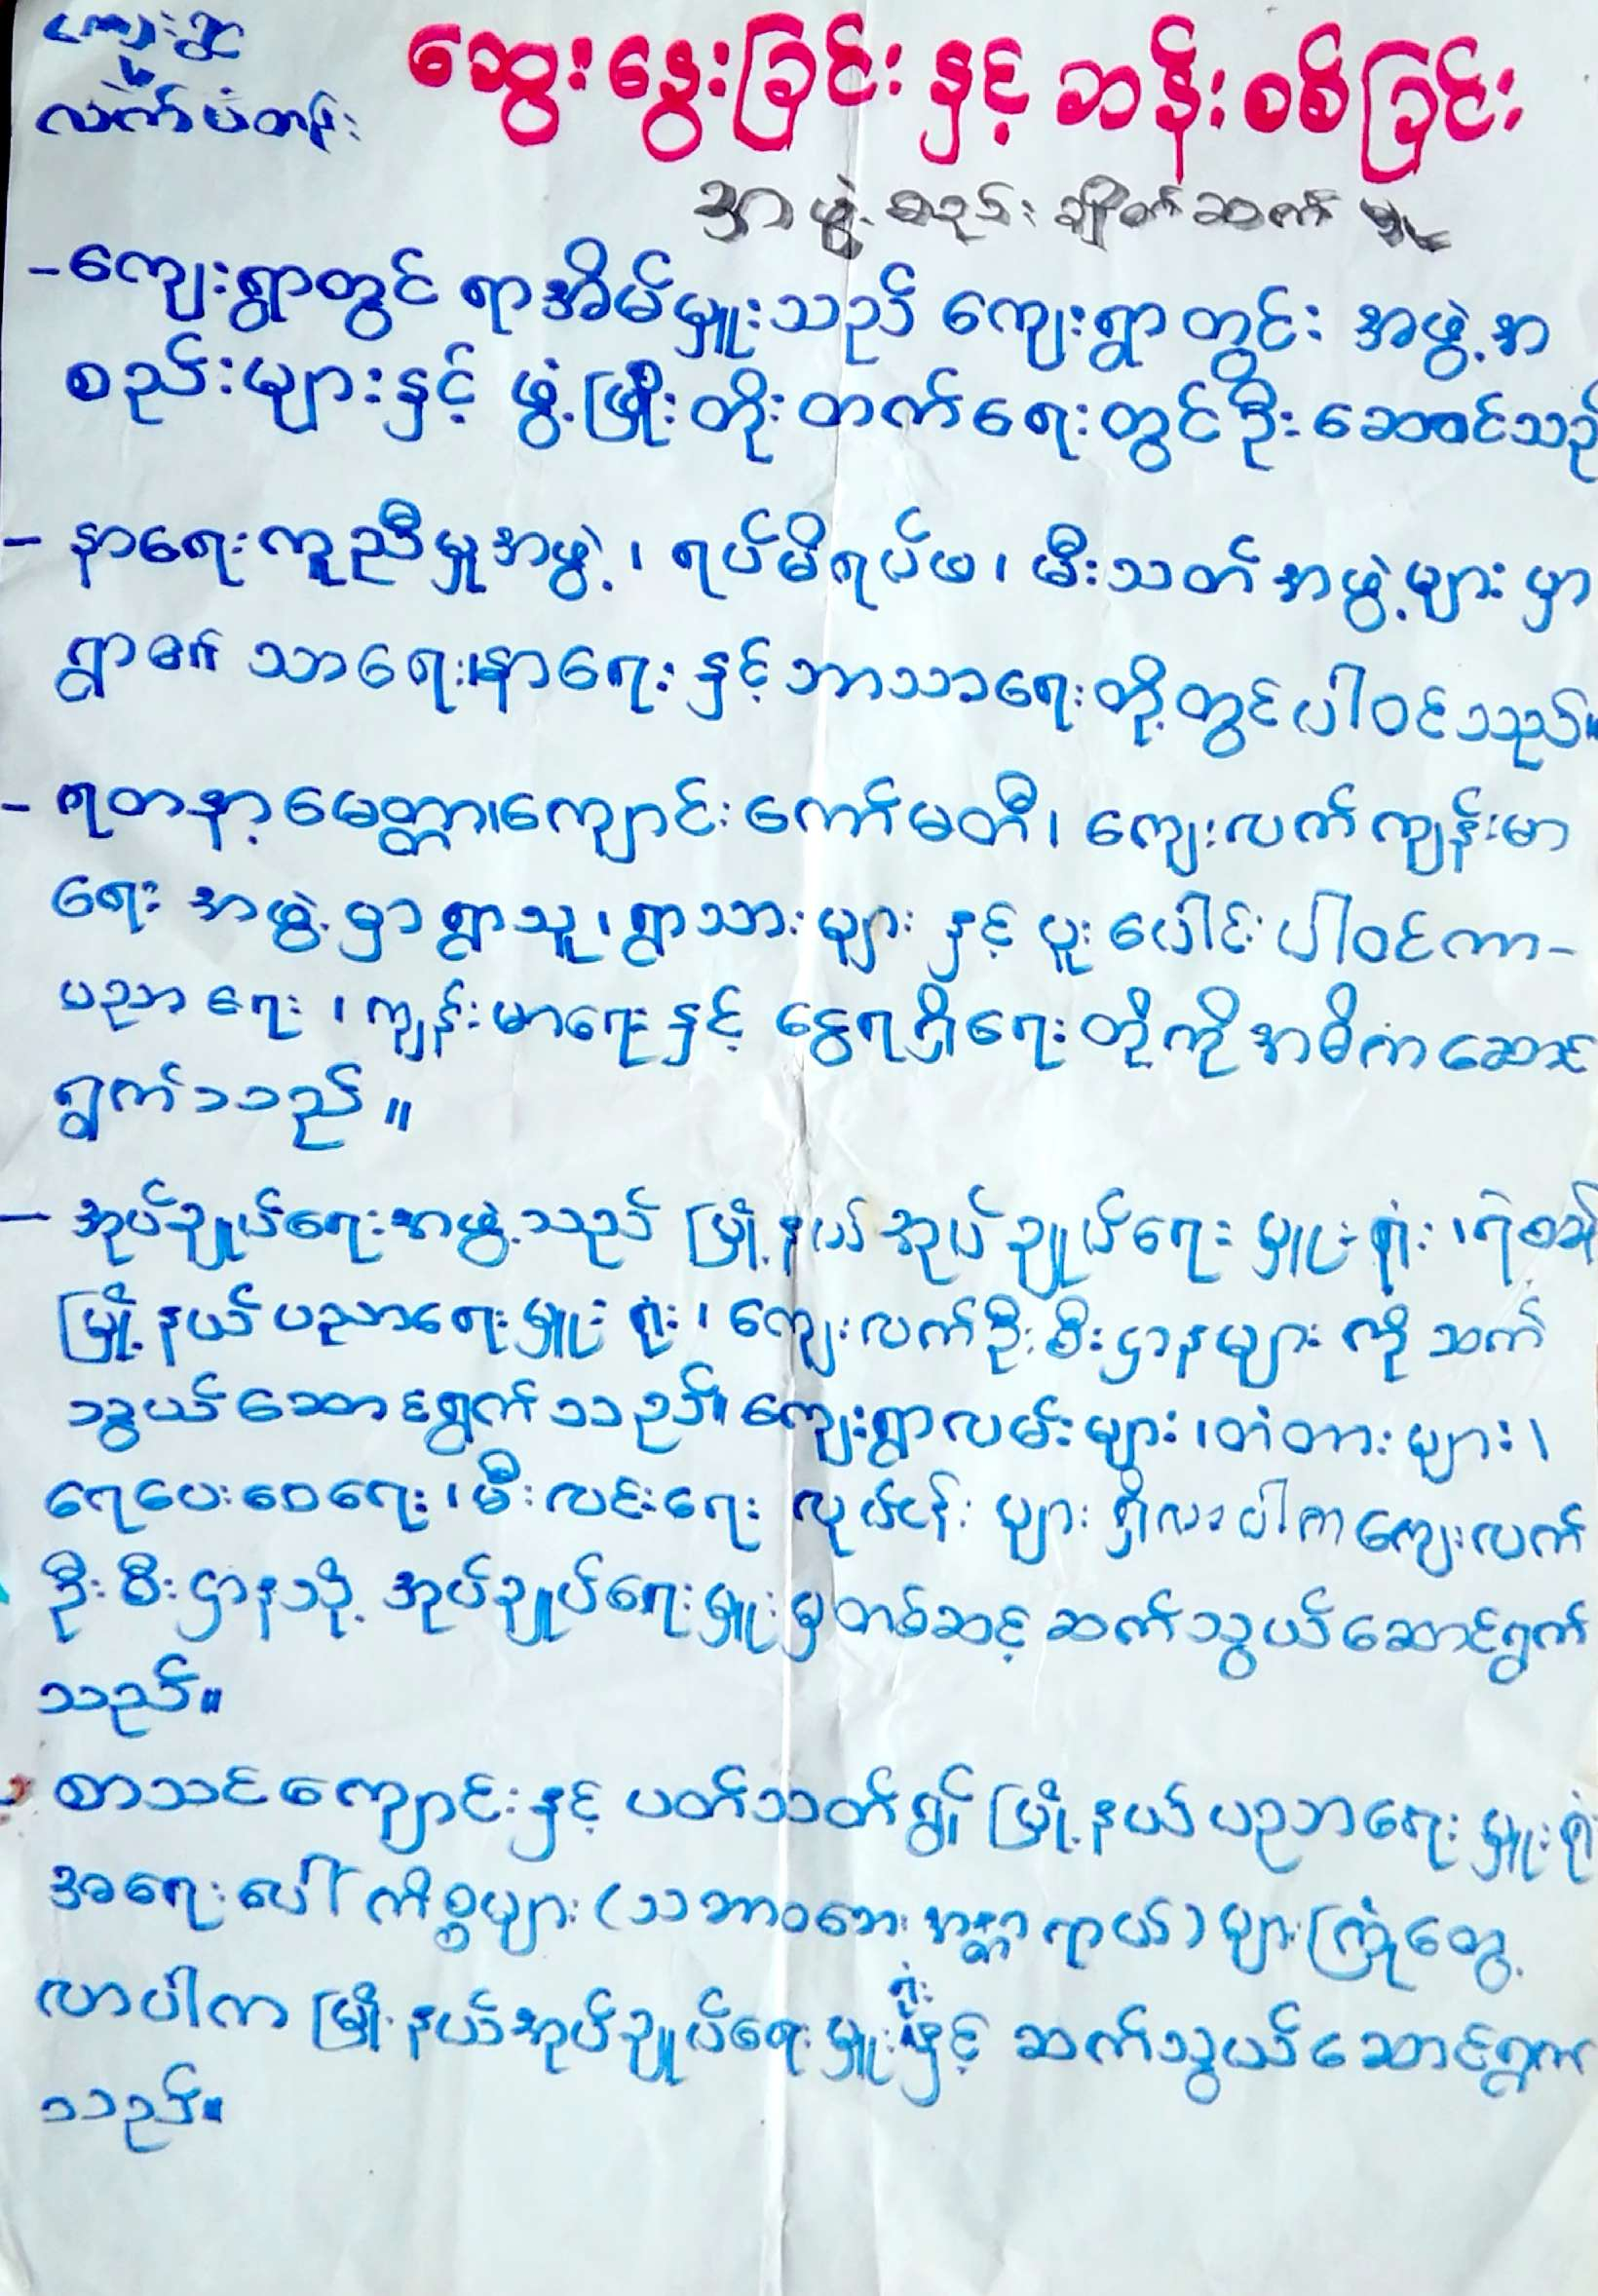 ကျေးရွာ
လက်ပံတန်း
ဆွေးနွေးခြင်း နှင့် ဆန်းစစ်ခြင်း
အဖွဲ့စည်း ချိတ်ဆက်မှု
-ကျေးရွာတွင် ရာအိမ်မှူးသည် ကျေးရွာတွင်း အဖွဲ့အ
စည်းများနှင့် ဖွံ့ဖြိုးတိုးတက်ရေးတွင်ဦးဆောင်သည်
- နာရေးကူညီမှုအဖွဲ့၊ ရပ်မိရပ်ဖ၊ မီးသတ်အဖွဲ့များမှာ
ရွာ၏ သာရေး၊နာရေး နှင့် ဘာသာရေးတို့တွင်ပါဝင်သည်။
- ရတနာ့မေတ္တာ၊ကျောင်းကော်မတီ၊ ကျေးလက်ကျန်းမာ
ရေး အဖွဲ့မှာ ရွာသူ၊ရွာသားများ နှင့် ပူးပေါင်းပါဝင်ကာ-
ပညာရေး၊ ကျန်းမာရေးနှင့် ငွေရရှိရေးတို့ကိုအဓိကဆောင်
ရွက်သည်။
- အုပ်ချုပ်ရေးအဖွဲ့သည် မြို့နယ်အုပ်ချုပ်ရေးမှူးရုံး၊ရဲစခန်း
မြို့နယ်ပညာရေးမှူးရုံး၊ ကျေးလက်ဦးစီးဌာနများကို ဆက်
သွယ်ဆောင်ရွက်သည်။ ကျေးရွာလမ်းများ၊တံတားများ၊
ရေပေးဝေရေး၊မီးလင်းရေး လုပ်ငန်းများ ရှိလာပါကကျေးလက်
ဦးစီးဌာနသို့ အုပ်ချုပ်ရေးမှူးမှတစ်ဆင့် ဆက်သွယ်ဆောင်ရွက်
သည်။
စာသင်ကျောင်းနှင့် ပတ်သတ်၍ မြို့နယ်ပညာရေးမှူးရုံး
အရေးပေါ်ကိစ္စများ (သဘာဝဘေးအန္တာရာယ်)များကြုံတွေ့
လာပါက မြို့နယ်အုပ်ချုပ်ရေးမှူးရုံးနှင့် ဆက်သွယ်ဆောင်ရွက်
သည်။